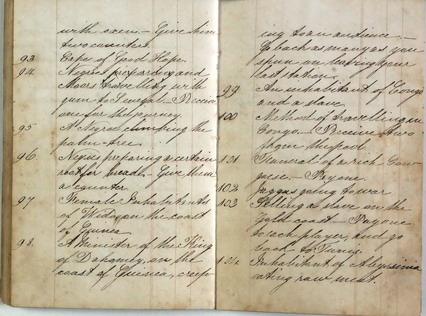 with oxen - Give him
two counters.
93 Cape of Good Hope.
94 Negroes preparing and
Moors travelling with
gum to Senegal. - Receive
one for the journey
95 A Negro climbing the
palm-tree.
96 Negroes preparing a certain
root for bread. - Give them
a counter
97 Female Inhabitants
of Widay on the coast
of Guinea
98. A Minister of the King
of Dahomey, on the
coast of Guinea,
ing to an audience. -
Go back as many as you
spun on leaving your
last station.
99 An inhabitant of Congo
and a slave.
100 Method of travelling in
Congo. - Receive two
from the pool.
101 Funeral of a rich Con-
goese. - Pay one.
102 Jaggas going to war
103 Selling a slave on the
Gold coast - Pay one
to each player, and go
back to Tunis.
104 Inhabitant of Abyssinia
eating raw meat.